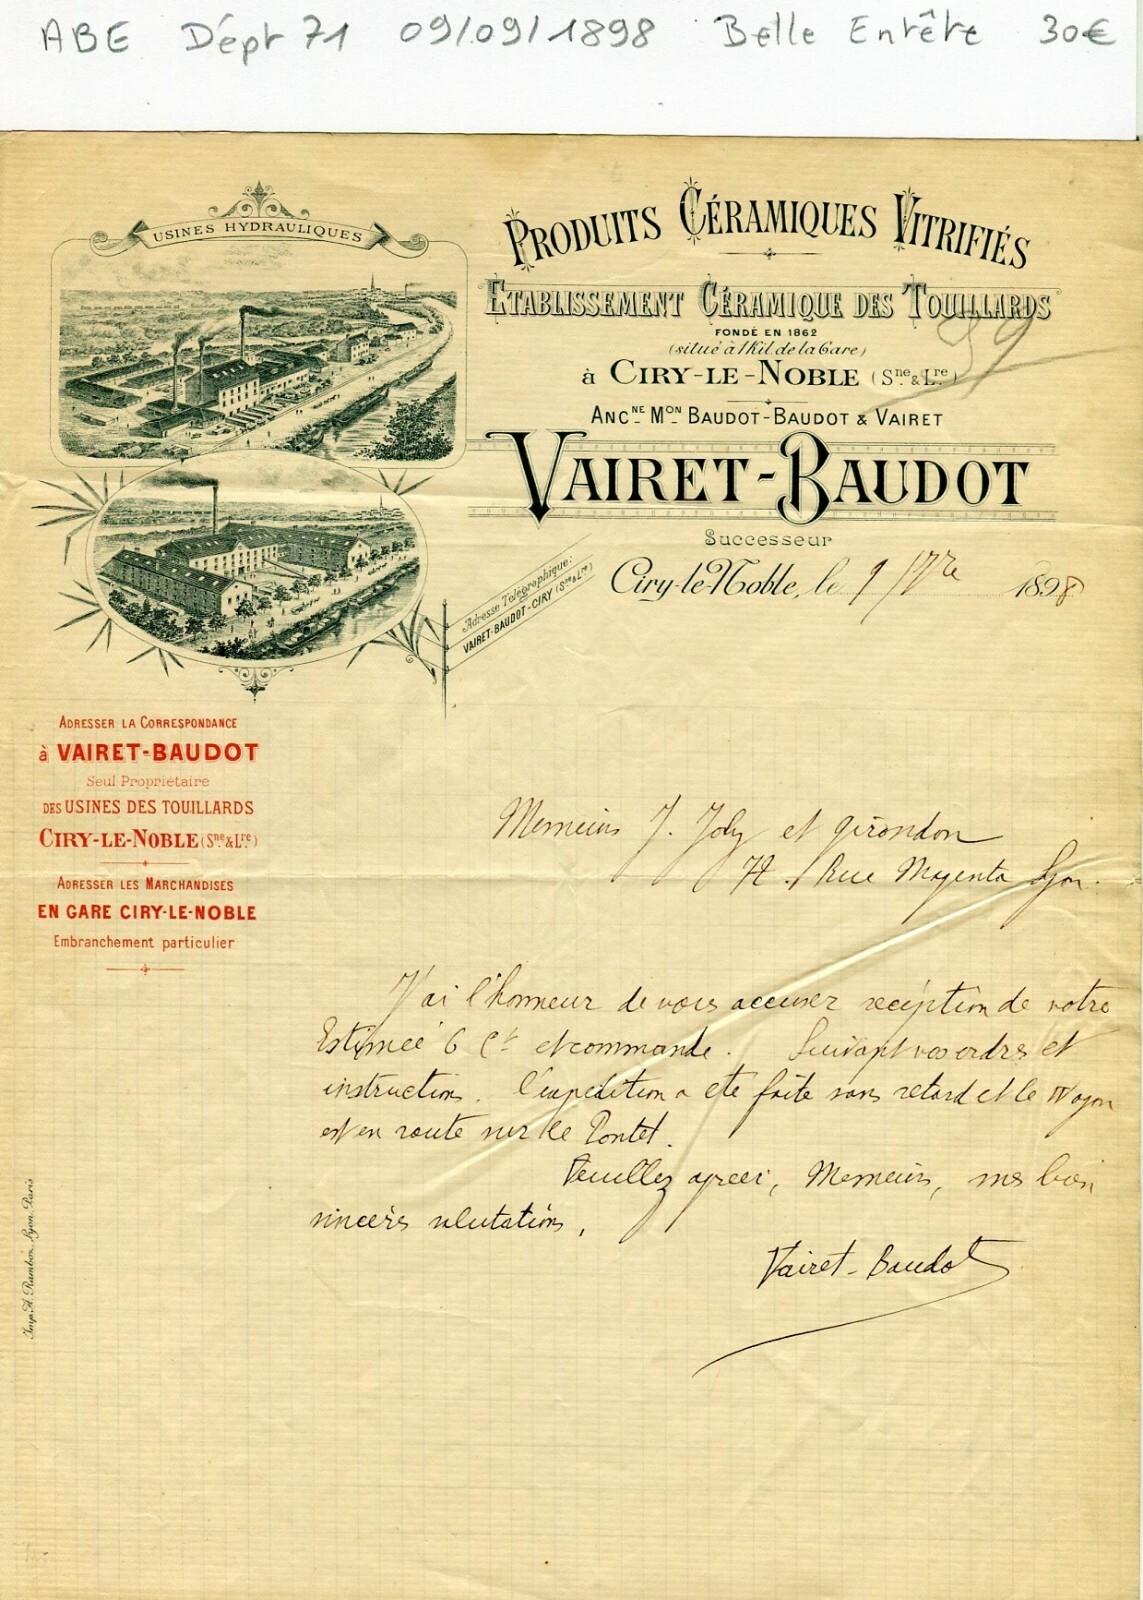 ABE Dépt 71 09/09/1898 Belle Entête 30€
USINES HYDRAULIQUES
PRODUITS CÉRAMIQUES VITRIFIÉS
ETABLISSEMENT CÉRAMIQUE DES TOUILLARDS
FONDÉ EN 1862
(situé à 1 Kil. de la Gare)
à CIRY-LE-NOBLE (Sne & Lre)
ANCNE MON BAUDOT-BAUDOT & VAIRET
VAIRET-BAUDOT
Successeur
Adresse Télégraphique:
VAIRET-BAUDOT-CIRY (Sne & Lre)
Ciry-le-Noble, le 9 7bre 1898
ADRESSER LA CORRESPONDANCE
à VAIRET-BAUDOT
Seul Propriétaire
DES USINES DES TOUILLARDS
CIRY-LE-NOBLE (Sne & Lre)
ADRESSER LES MARCHANDISES
EN GARE CIRY-LE-NOBLE
Embranchement particulier
Messieurs J. Joly et Girondon
72. Rue Magenta Lyon.
J'ai l'honneur de vous accuser recéption de votre
Estimée 6 Ct et commande. Suivant vos ordres et
instruction. l'expedition a eté faite sans retard et le Wagon
est en route sur le Pontet.
Veuillez agreer, Messieurs, mes bien
sincères salutations,
Vairet-Baudot
Imp. A. Rambox, Lyon, Paris